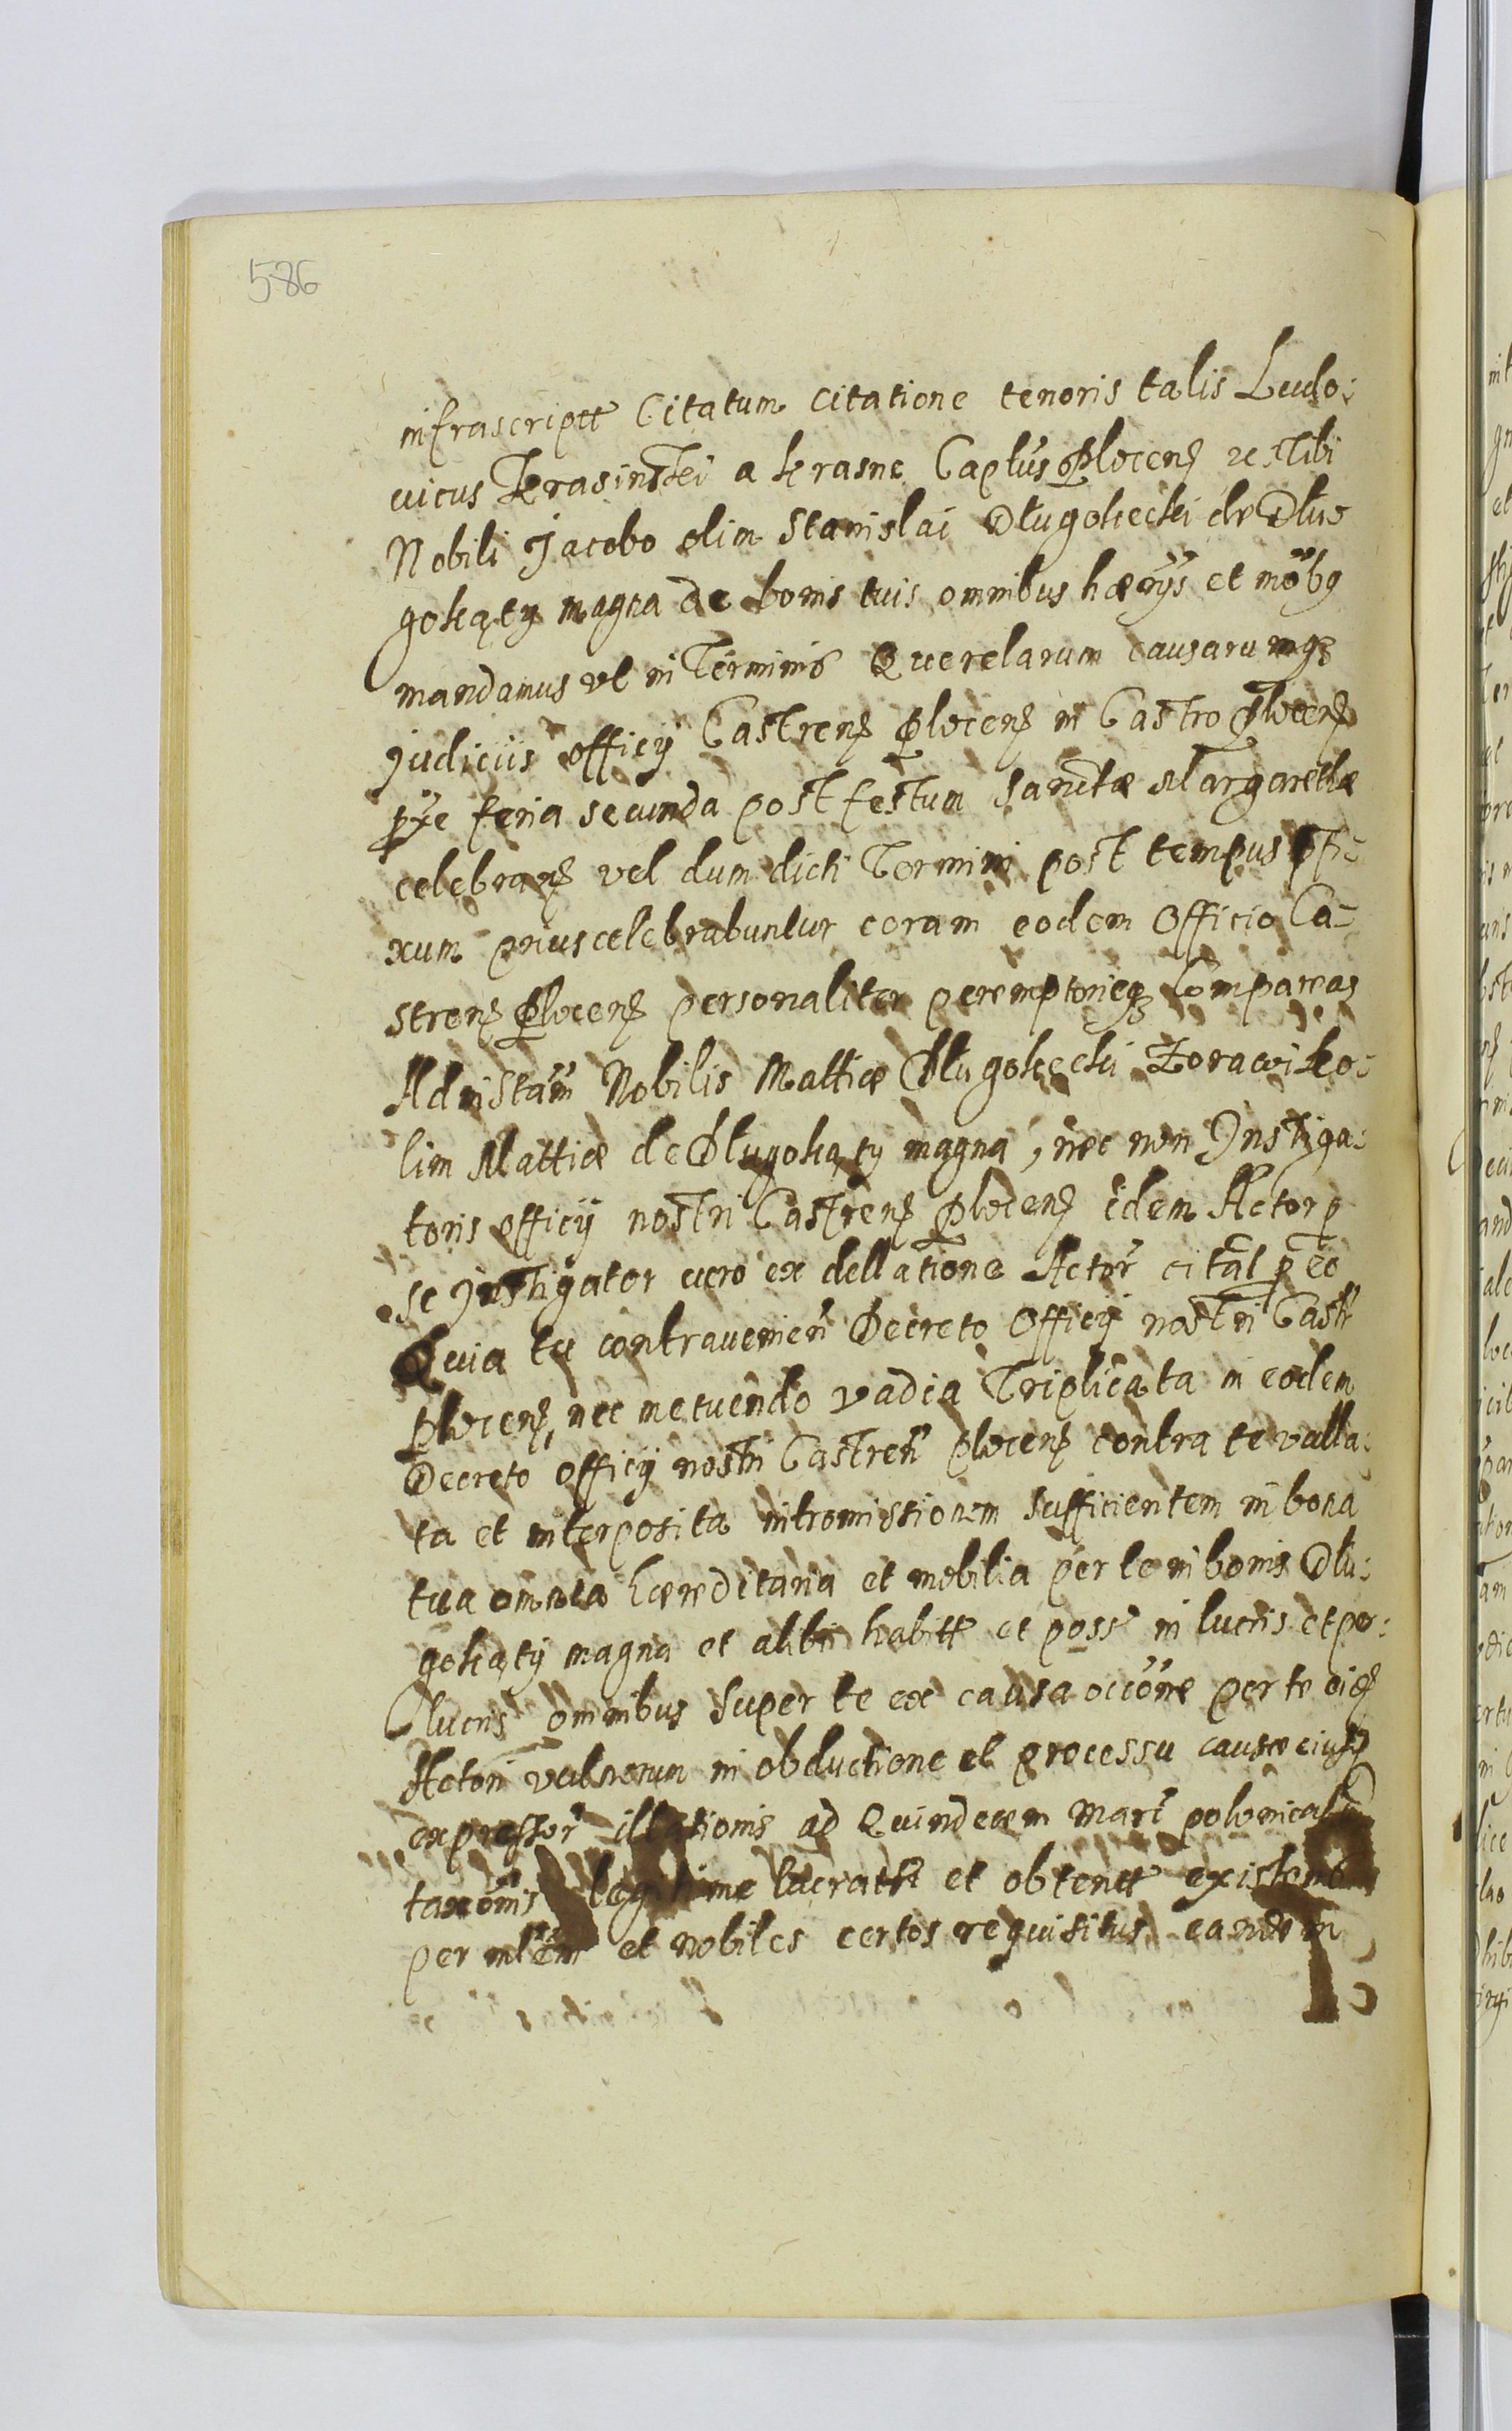 586
infrascriptt Citatum citatione tenoris talis Ludo:
uicus Krasinski a Krasne Captus Plocens etc Tibi
Nobili Jacobo olim Stanislai Długokecki de Dłu=
gokąty magna de bonis tuis omnibus hæriis et mobg
mandamus vt in Terminis Querelarum causarumqz
Judiciis officij Castrens Plocens in Castro Plocens
pxe feria secunda post festum Sanctæ Margarethæ
celebrans vel dum dicti Termini post tempus pfi=
xum prius celebrabuntur coram eodem Officio Ca=
strens Plocens personaliter peremptorieqz Compareas
Ad instam Nobilis Matthiæ Długokecki Zorawik o:
lim Matthiæ de Długokąty magna, nec non Instiga:
toris officij nostri Castrens Plocens idem Actor p
se Instigator uero ex dellatione Actor citat p eo
Quia tu contraueniens Decreto Officij nostri Castr
Plocens, nec metuendo vadia Triplicata in eodem
Decreto officij nostri Castren Plocens contra te valla:
ta et interposita intromissionem sufficientem in bona
tua omnia hæreditaria et mobilia per te in bonis Dłu:
gokąty magna et alibi habitt et poss in lucris et per:
lucris omnibus super te ex causa occone per te eid
Actori vulnerum in obductione et processu causæ eiusd
expressor illationis ad Quindecem Marc polonical
taxonis legitime lucratt et obtentt existent
per mltem et nobiles certos requisitus eandem